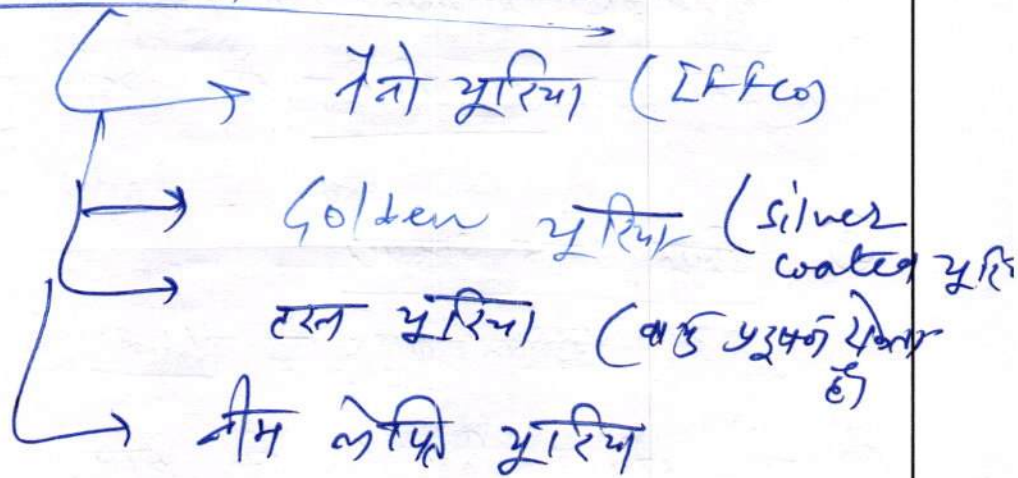 नैनो यूरिया (IFFCO)
Golden यूरिया (silver
coated यूरि
तरल यूरिया (वायु प्रदूषण रोकता
है)
नीम लेपित यूरिया